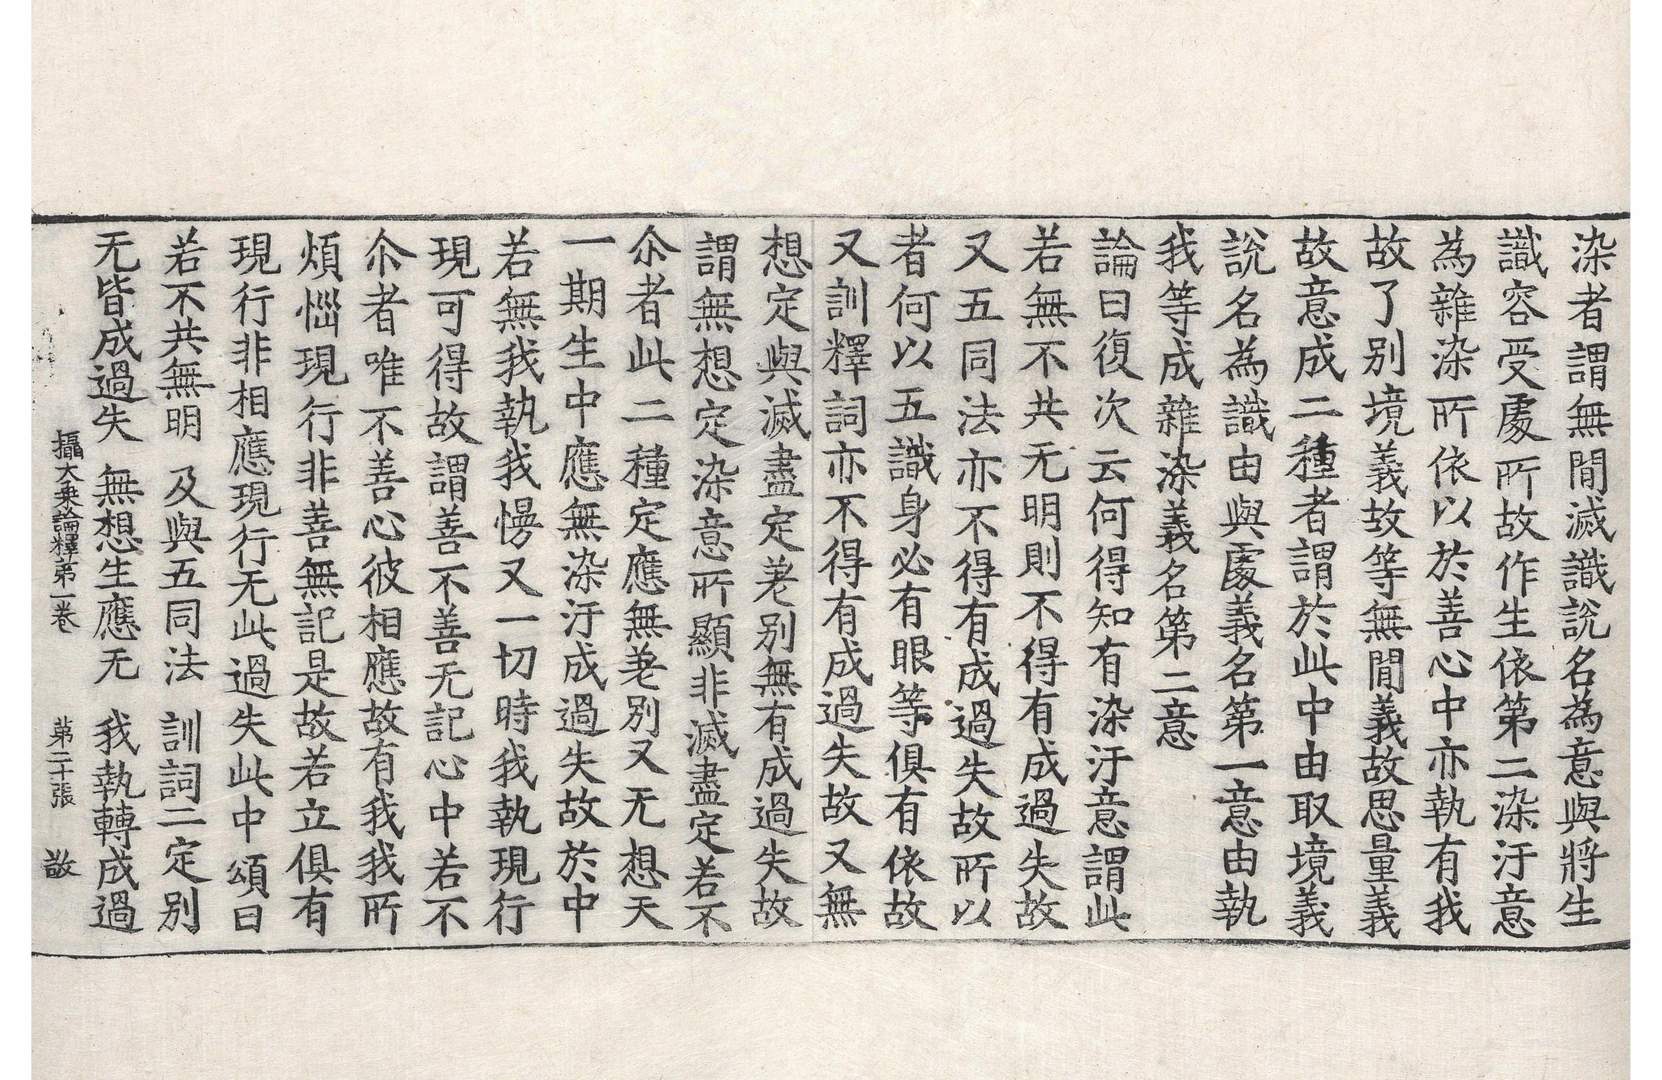 染者謂無間滅識說名為意與將生
識容受處所故作生依第二染汙意
為雜染所依以於善心中亦執有我
故了別境義故等無間義故思量義
故意成二種者謂於此中由取境義
說名為識由與處義名第一意由執
我等成雜染義名第二意
論曰復次云何得知有染汙意謂此
若無不共无明則不得有成過失故
又五同法亦不得有成過失故所以
者何以五識身必有眼等俱有依故
又訓釋詞亦不得有成過失故又無
想定與滅盡定差別無有成過失故
謂無想定染意所顯非滅盡定若不
尒者此二種定應無差別又无想天
一期生中應無染汙成過失故於中
若無我執我慢又一切時我執現行
現可得故謂善不善无記心中若不
尒者唯不善心彼相應故有我我所
煩惱現行非善無記是故若立俱有
現行非相應現行无此過失此中頌曰
若不共無明 及與五同法 訓詞二定別
无皆成過失 無想生應无 我執轉成過
攝大乘論釋第一卷 第二十張 敬